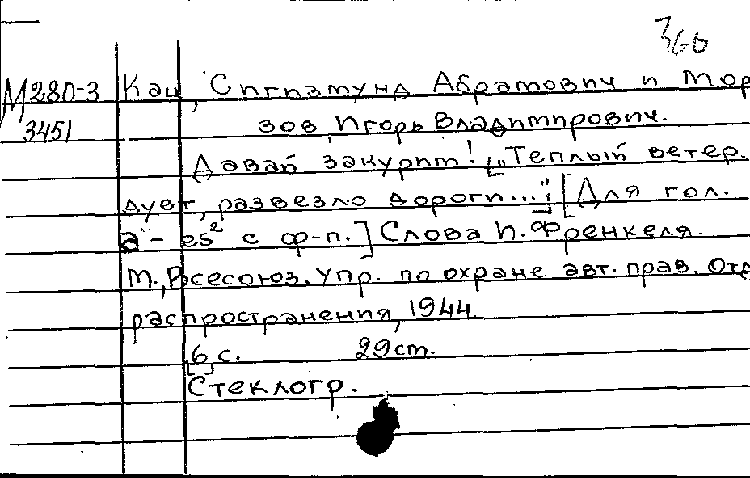 360
М280-3 Кац, Сигизмунд Абрамович и Мор
3451 зов, Игорь Владимирович.
Давай закурим! ["Теплый ветер.
дует, развезло дороги..."; [Для гол.
a - es² с ф-п.] Слова И. Френкеля.
М., Всесоюз. упр. по охране авт. прав. Отд
распространения, 1944.
6 с. 29см.
Стеклогр.